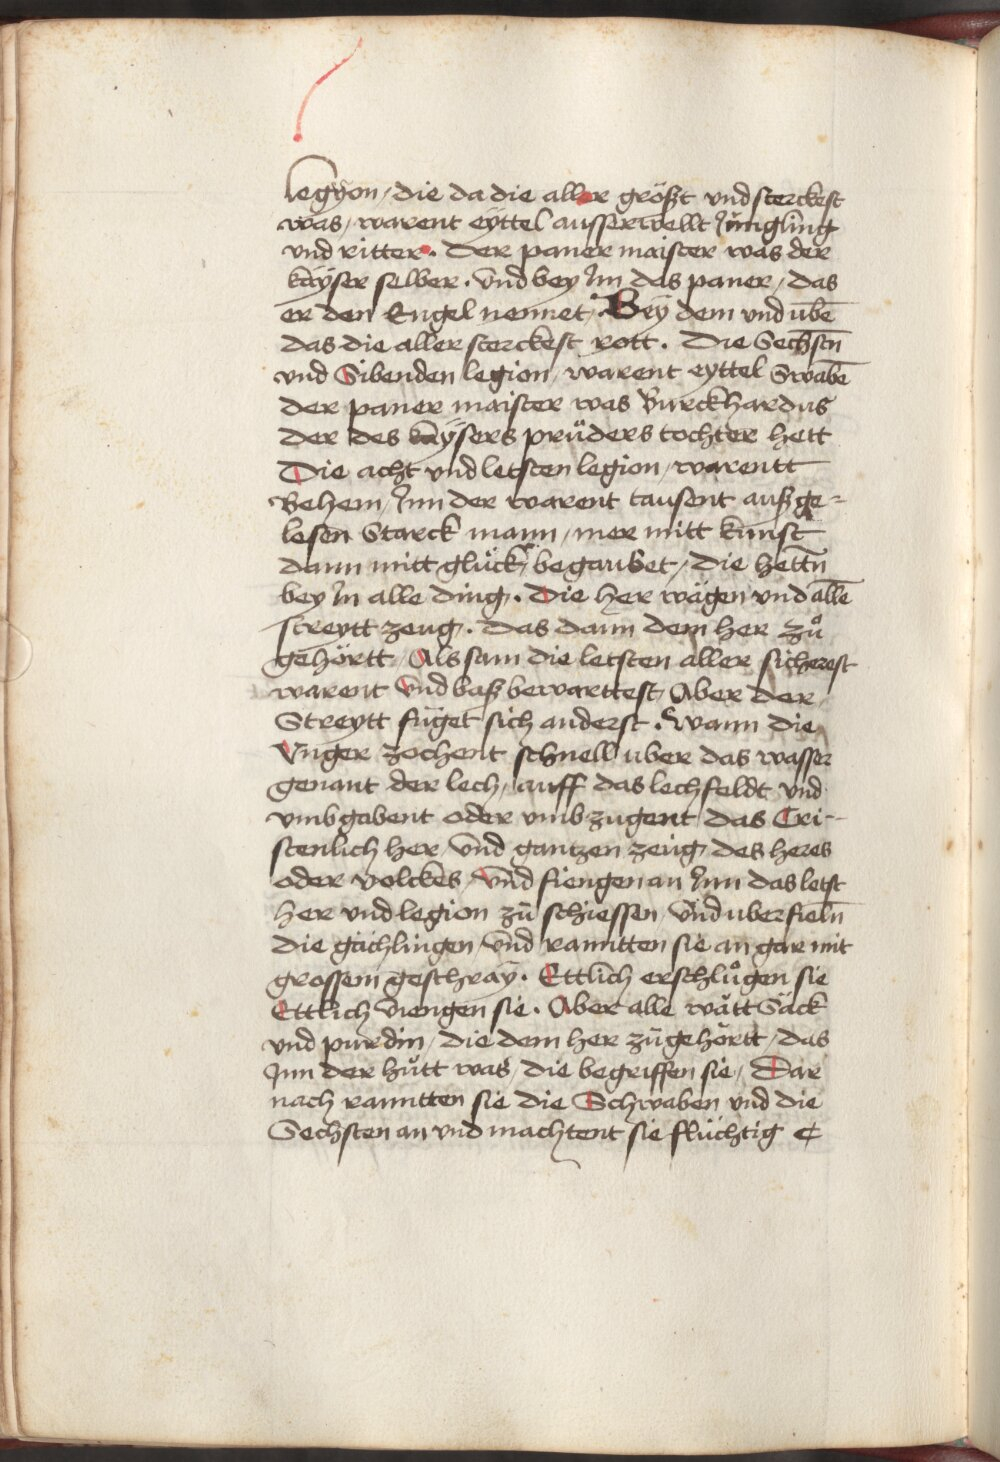 legÿon / die da die aller größt vnd sterckest
was / warent eÿttel ausserwellt Jüngling
vnd ritter . Der paner maister was der
kaÿser selber . Vnd bey Jm das paner / das
er den Engel nennet / Beÿ dem vnd vbē
das die aller sterckest rott . Die Sechstn̄
vnd Sibenden legion / warent eyttel Swabē
der paner maister was Burckhardus
der des kaÿsers prüders tochter hett
Die acht vnd letsten legion / warentt
Behem / Jnn der warent tausent außge-
lesen Starck mann / mer mitt kunst
dann mitt glück / begaubet / die hettn̄
bey Jn alle ding . Die her wägen vnd allē
streytt zeug . das dann dem her zů
gehörtt / Als sam die letsten aller sicherest
warent Vnd baß bewarttest / Aber der
Streytt füget sich anderst . Wann die
Vnger zochent schnell uber das wasser
genant der lech / auff das lechfeldt vnd
vmbgabent oder vmbzugent das Cri-
stenlich her / vnd gantzen zeüg des heres
oder volckes / vnd fiengen an Jnn das letst
her vnd legion zů schiessen / vnd uberfieln̄
die gächlingen / vnd ranntten sie an gar mit
grossem geschraÿ . Ettlich erschlůgen sie
Ettlich viengen sie . Aber alle wätt Säck
vnd purdin / die dem her zůgehörtt / das
Jnn der hůtt was / die begriffen sie / Dar
nach ranntten sie die Schwaben vnd die
Sechsten an vnd machtent sie flüchtig